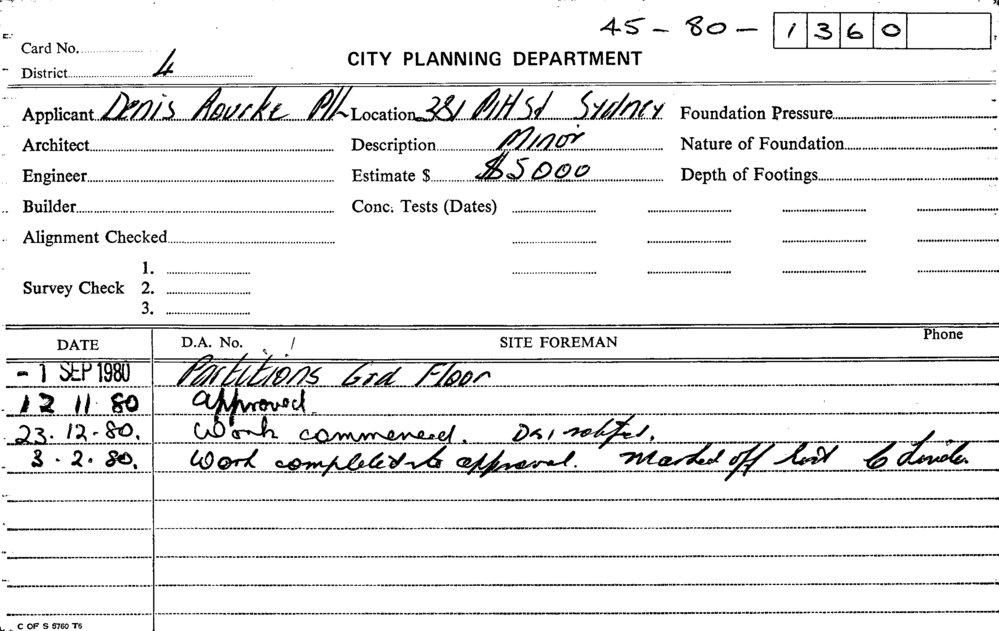 45 - 80 - 1360
Card No.
District 4
CITY PLANNING DEPARTMENT
Applicant Denis Rourke P/L Location 381 Pitt St Sydney Foundation Pressure
Architect Description Minor Nature of Foundation
Engineer Estimate $ $5000 Depth of Footings
Builder Conc. Tests (Dates)
Alignment Checked
1.
Survey Check 2.
3.
DATE D.A. No. / SITE FOREMAN Phone
- 1 SEP 1980 Partitions Grd Floor
12 11 80 Approved
23.12-80. Work commenced.
3.2.80. Work completed to approval. Marked off
C OF S 5760 T6